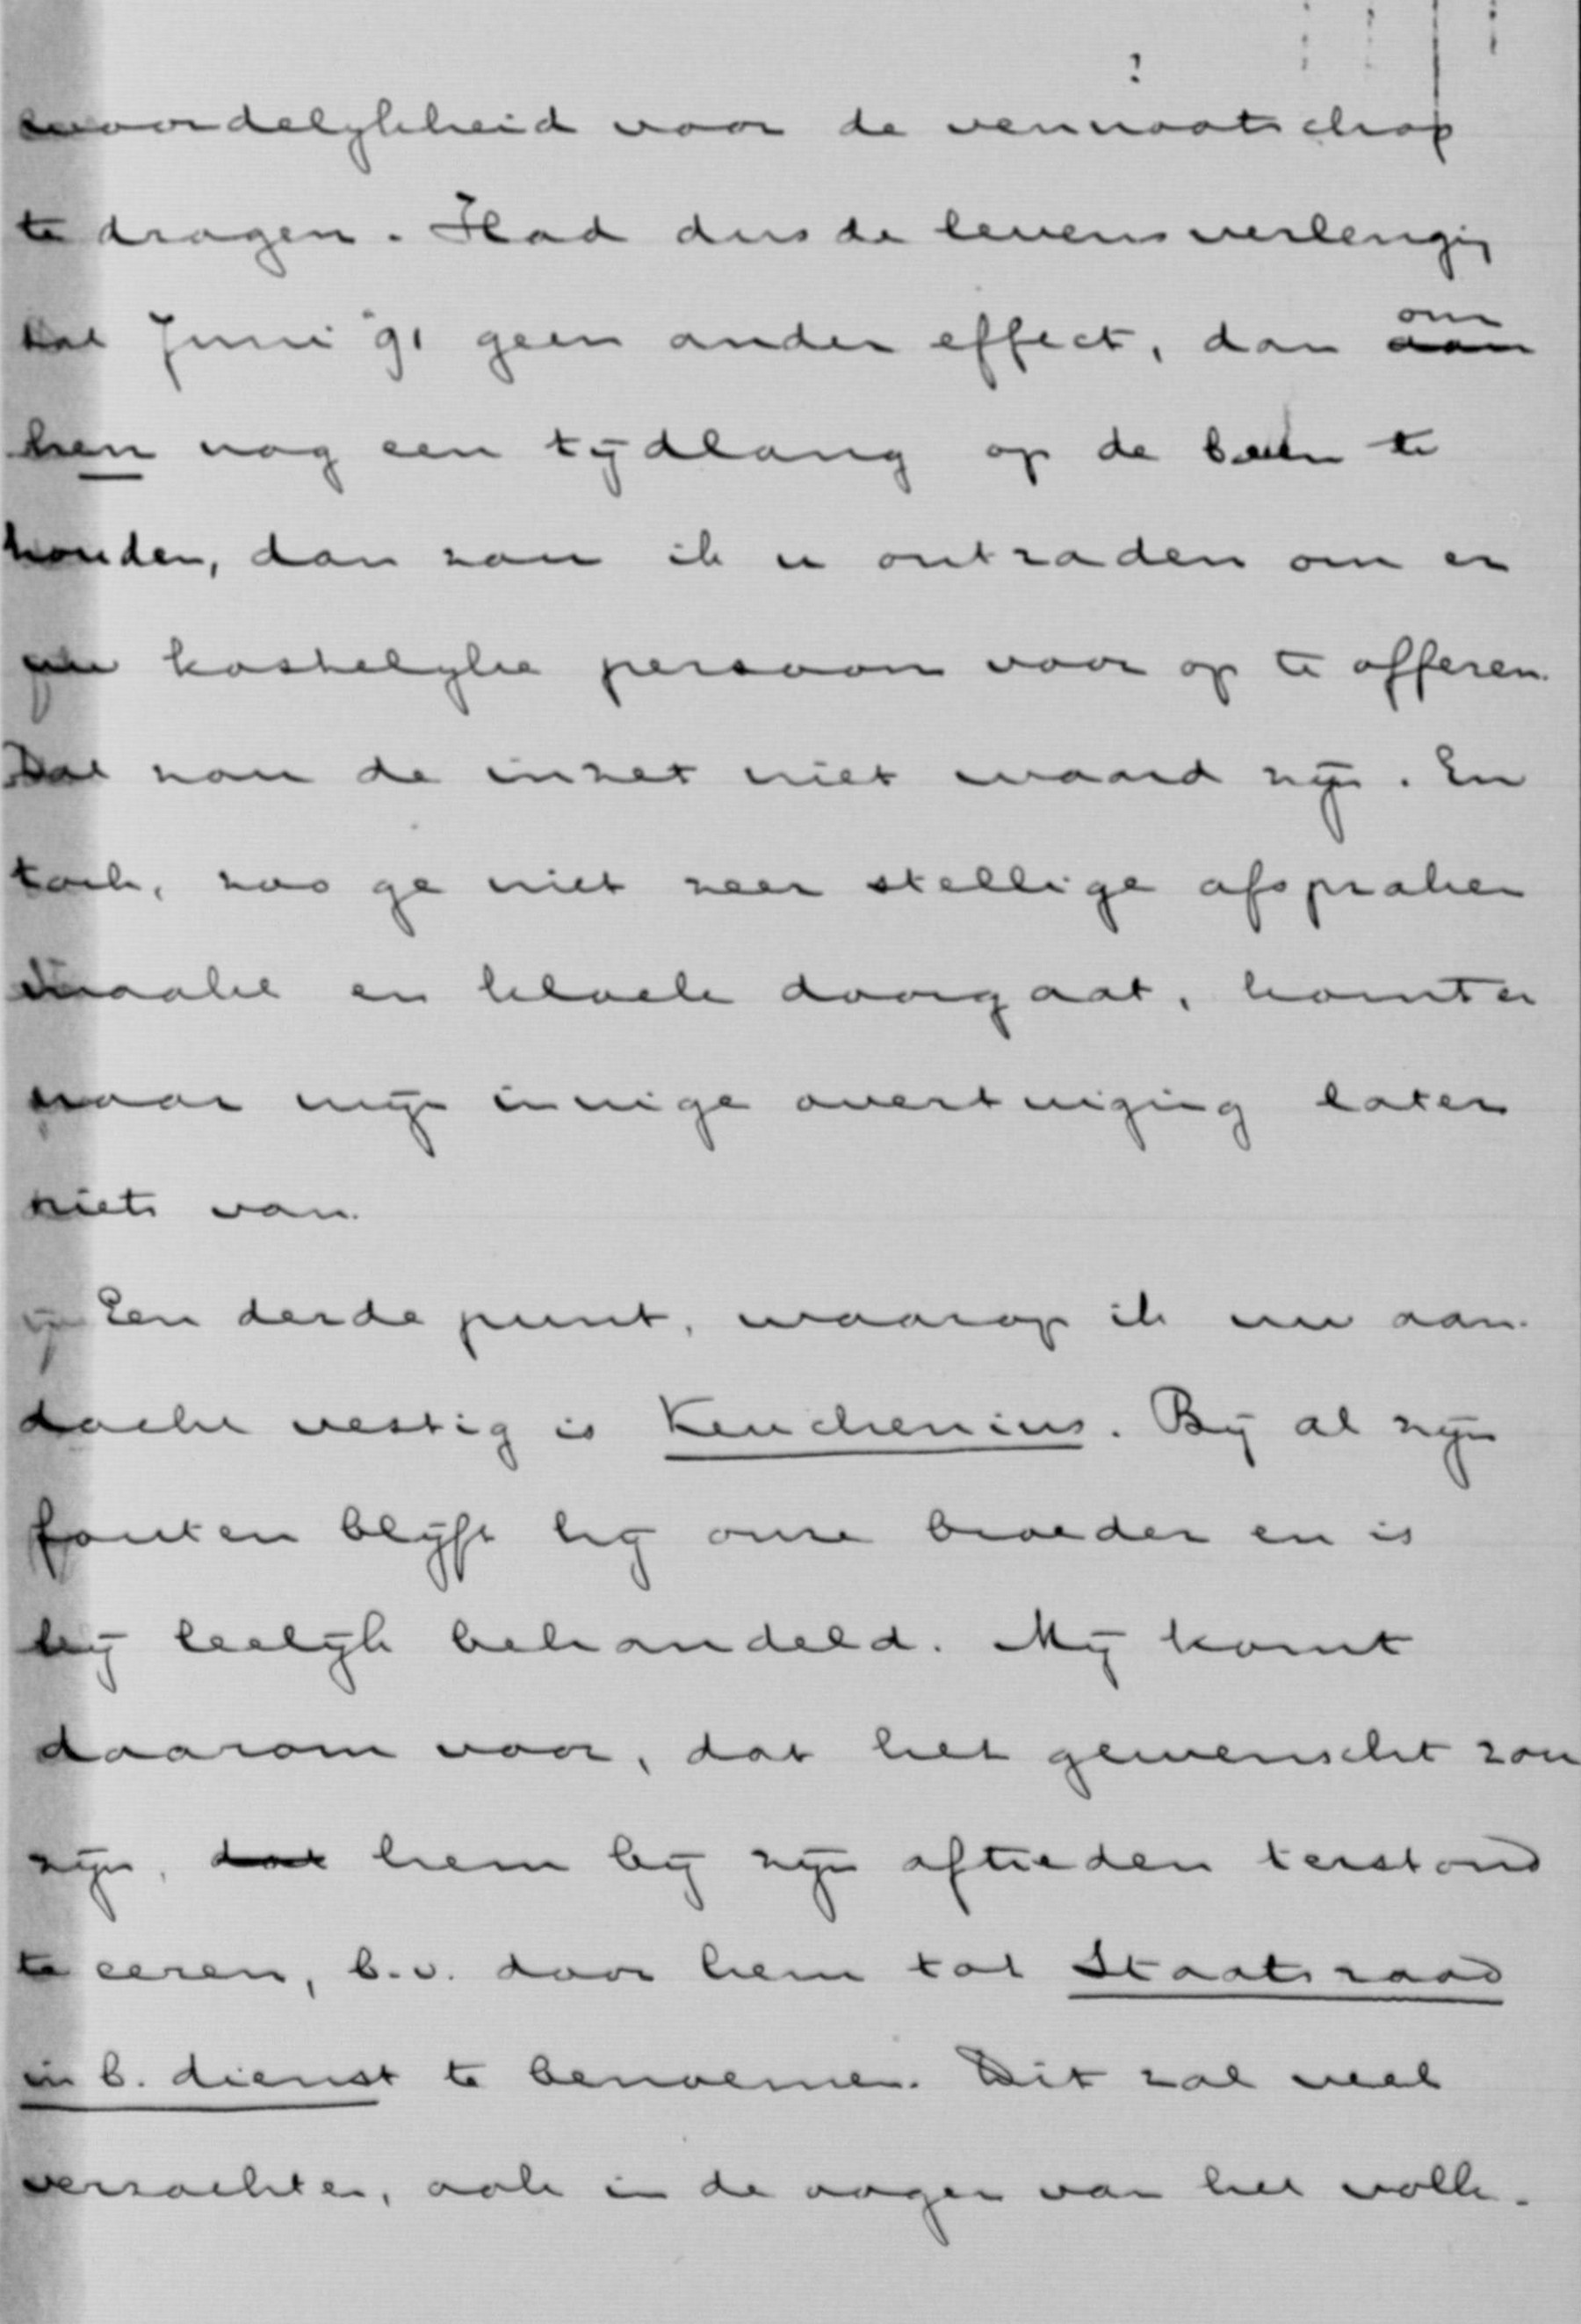 woordelijkheid voor de vennootschap
te dragen. Had dus de levensverlenging
tot Juni '91 geen ander effect, dan om
hen nog een tijdlang op de been te
houden, dan zou ik u ontraden om er
uw kostelijke persoon voor op te offeren.
Dat zou de inzet niet waard zijn. En
toch, zoo ge niet zeer stellige afspraken
maakt en kloek doorgaat, komt er
naar mijn innige overtuiging later
niets van.
Een derde punt, waarop ik uw aan-
dacht vestig is Keuchenius. Bij al zijn
fouten blijft hij onze broeder en is
hij leelijk behandeld. Mij komt
daarom voor, dat het gewenscht zou
zijn, dat hem bij zijn aftreden terstond
te eeren, b.v. door hem tot Staatsraad
in b. dienst te benoemen. Dit zal veel
verzachten, ook in de oogen van het volk.